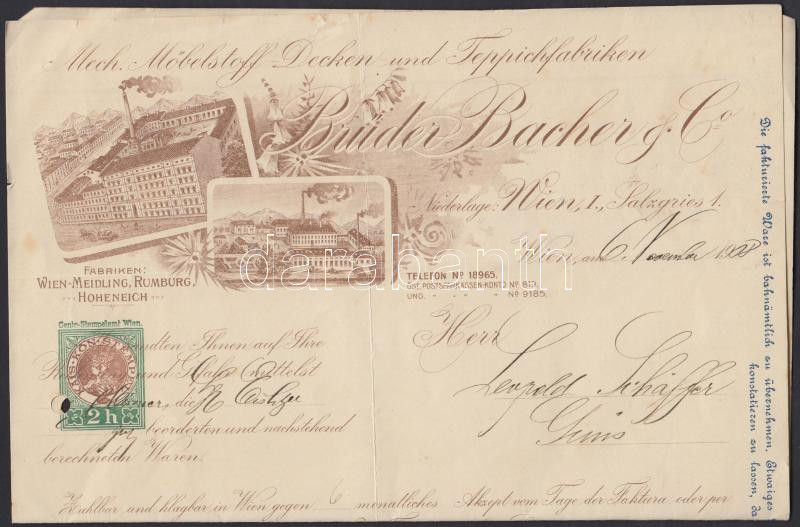 Mech. Möbelstoff Decken und Teppichfabriken
Brüder Bacher & Co
Niederlage: Wien, I., Salzgries 1.
Wien, am 6 November 1908
FABRIKEN:
WIEN-MEIDLING, RUMBURG,
HOHENEICH
TELEFON No 18965.
ÖST. POSTSPARKASSEN-KONTO No 819.
UNG. " " " No 9185.
Herr
Leopold Schäffer
Güns
Centr.-Stempelamt Wien.
2 h
Ihnen auf Ihre
und Gefahr mittelst
die
beorderten und nachstehend
berechneten Waren.
Zahlbar und klagbar in Wien gegen 6 monatliches Akzept vom Tage der Faktura oder per
Die fakturierte Ware ist bahnämtlich zu übernehmen. Etwaiges
konstatieren zu lassen, da
darabanth